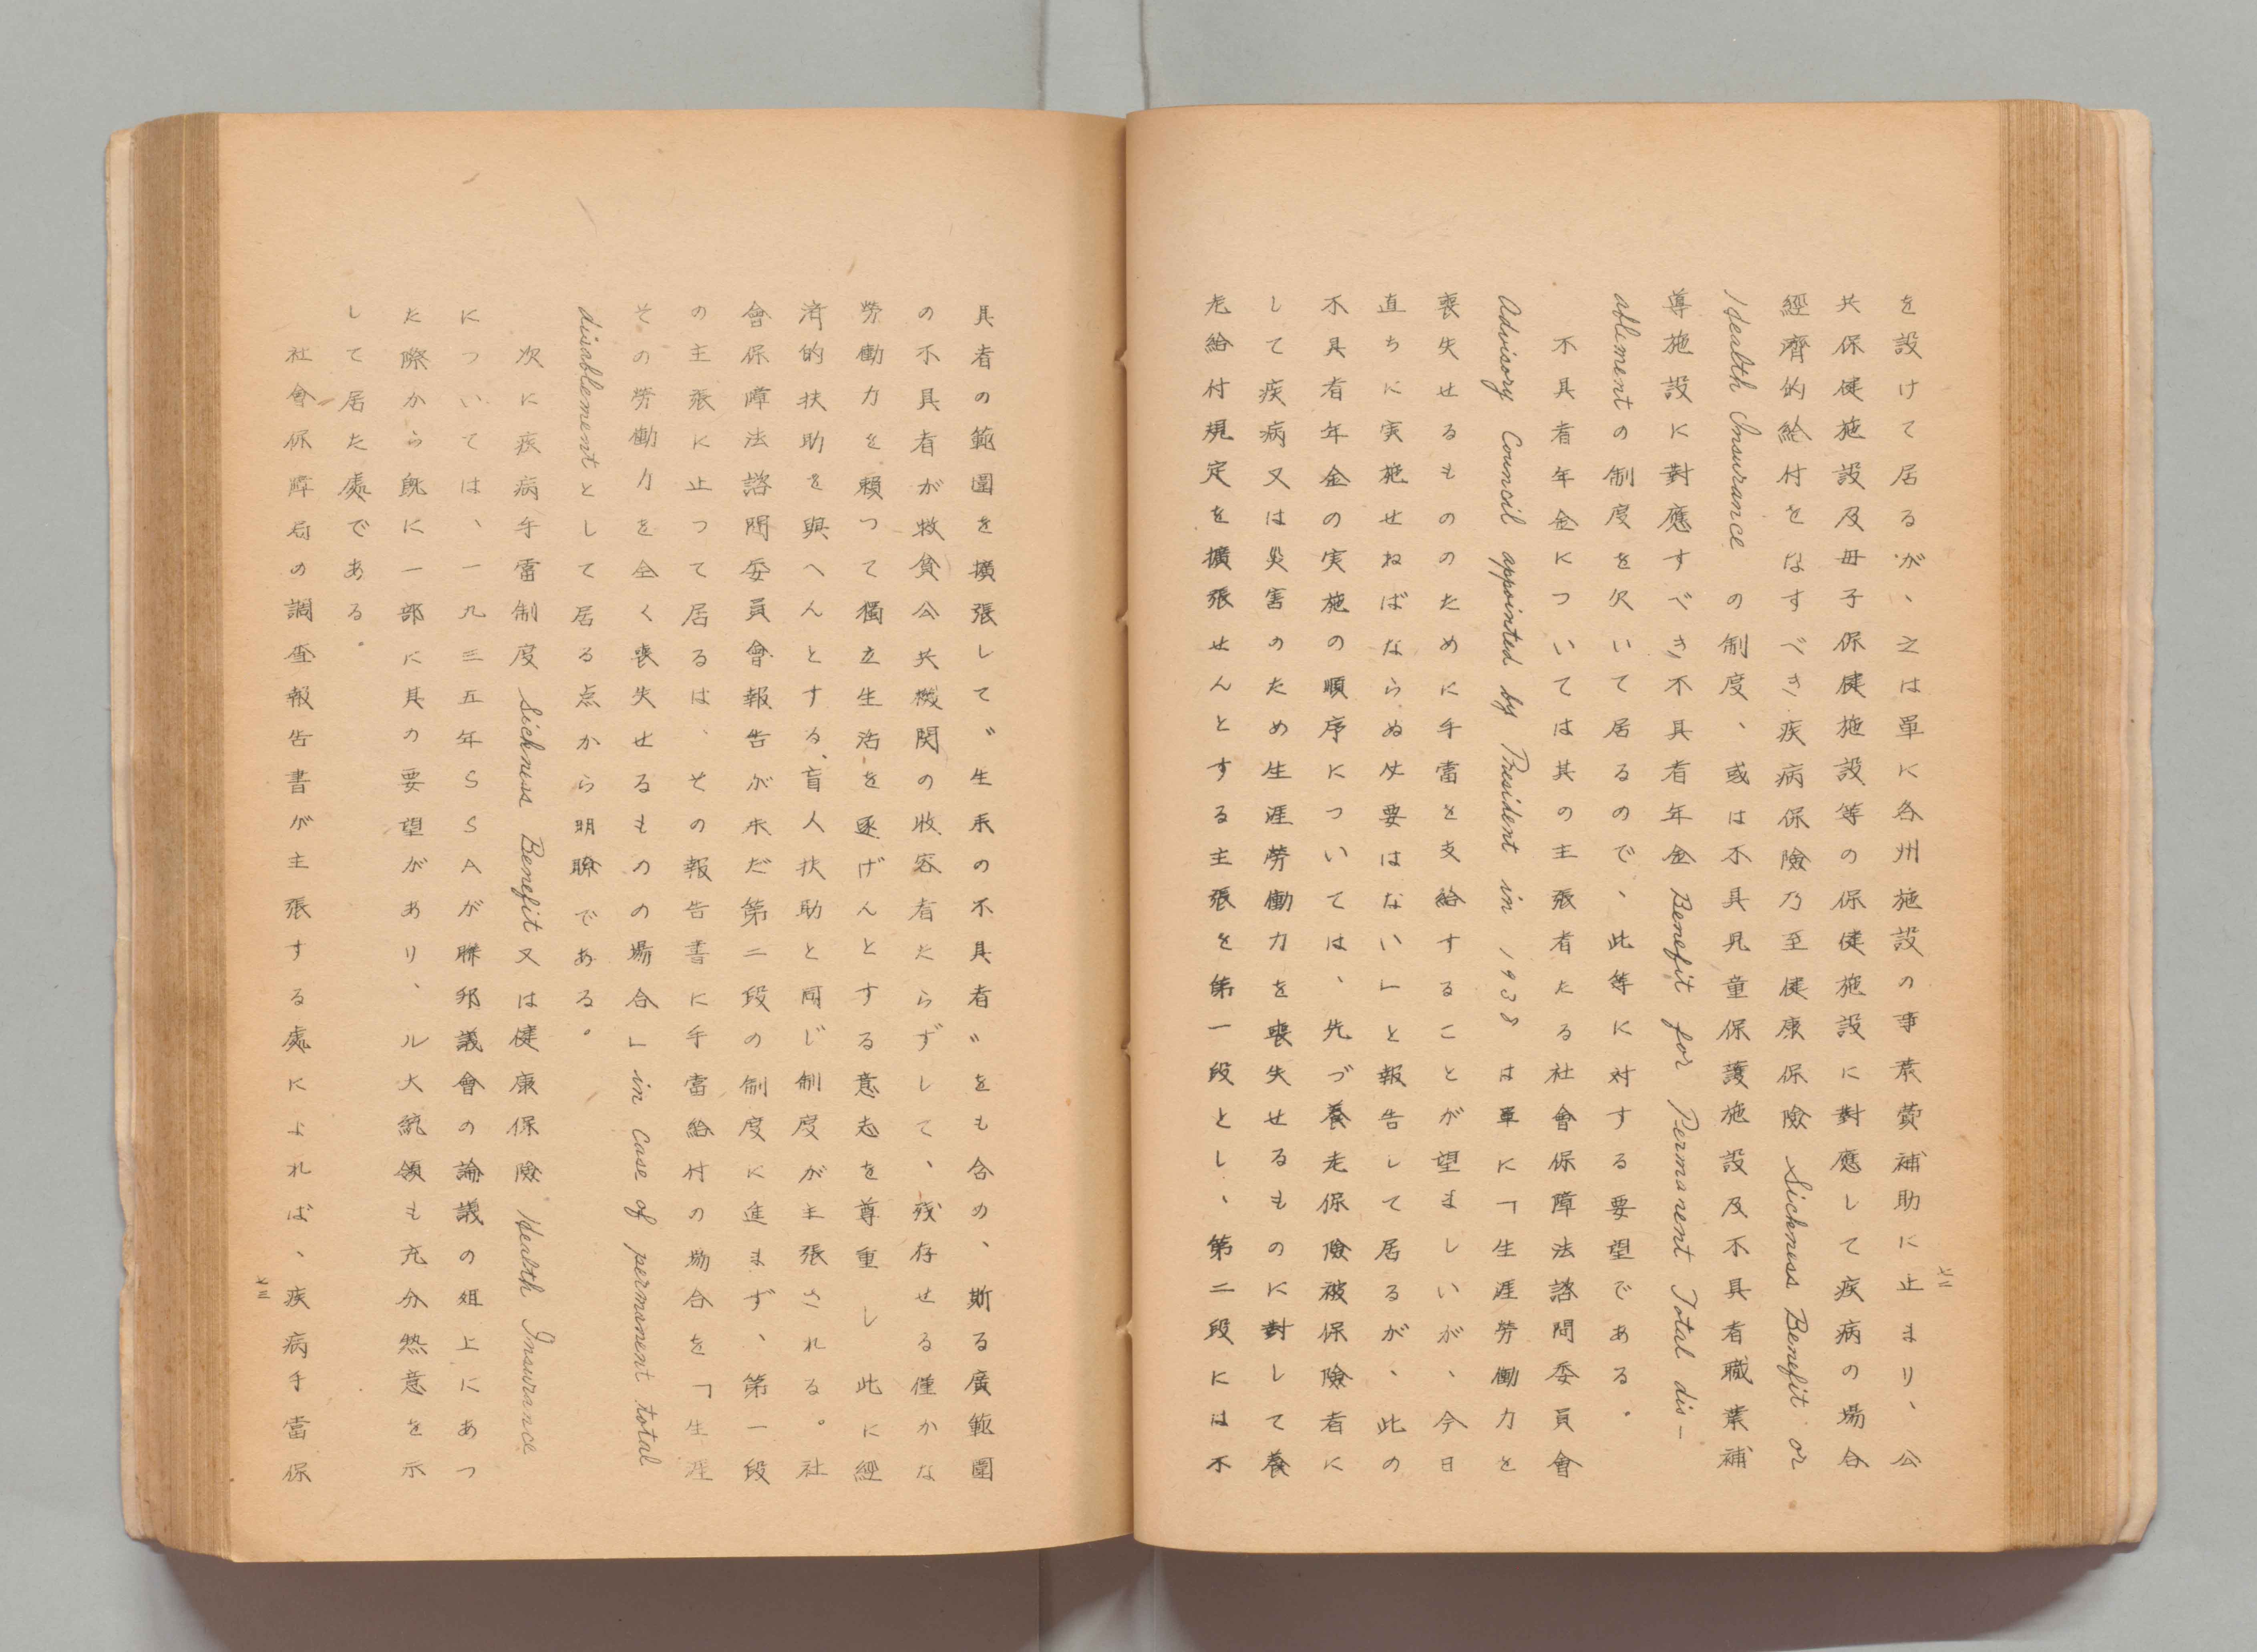 を設けて居るが、之は單に各州施設の事業費補助に止まり、公
共保健施設及母子保健施設等の保健施設に對應して疾病の場合
經濟的給付をなすべき疾病保險乃至健康保險 Sickness Benefit or
Health Insurance の制度、或は不具児童保護施設及不具者職業補
導施設に對應すべき不具者年金 Benefit for Permanent Total dis-
ablement の制度を欠いて居るので、此等に対する要望である。
不具者年金については其の主張者たる社會保障法諮問委員會
Advisory Council appointed by President in 1938 は單に「生涯労働力を
喪失せるもののために手當を支給することが望ましいが、今日
直ちに実施せねばならぬ必要はない」と報告して居るが、此の
不具者年金の実施の順序については、先づ養老保険被保險者に
して疾病又は災害のため生涯勞働力を喪失せるものに對して養
老給付規定を擴張せんとする主張を第一段とし、第二段には不
七二
具者の範圍を擴張して〝生来の不具者〟をも含め、斯る廣範圍
の不具者が救貧公共機関の收容者たらずして、残存せる僅かな
勞働力を頼つて獨立生活を遂げんとする意志を尊重し此に經
済的扶助を與へんとする、盲人扶助と同じ制度が主張される。社
會保障法諮問委員會報告が未だ第二段の制度に進まず、第一段
の主張に止つて居るは、その報告書に手當給付の場合を「生涯
その勞働力を全く喪失せるものの場合」in case of permanent total
disablement として居る点から明瞭である。
次に疾病手當制度 Sickness Benefit 又は健康保險 Health Insurance
については、一九三五年SSAが聯邦議會の論議の俎上にあつ
た際から既に一部に其の要望があり、ル大統領も充分熱意を示
して居た處である。
社會保障局の調査報告書が主張する處によれば、疾病手當保
七三